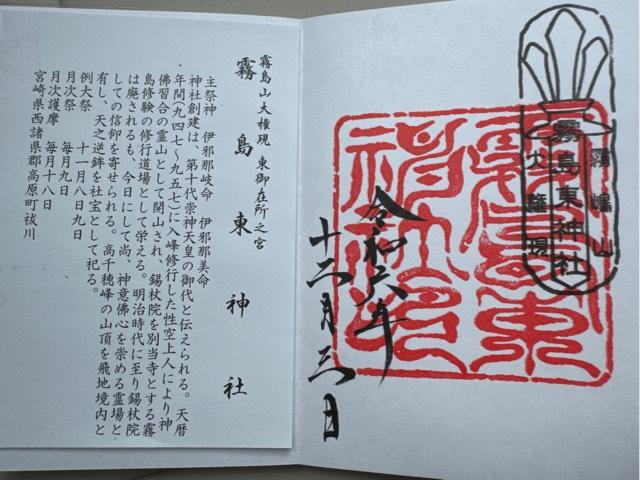 霧島山大権現 東御在所之宮
霧島東神社
主祭神 伊邪那岐命 伊邪那美命
神社創建は、第十代崇神天皇の御代と伝えられる。天暦
年間(九四七〜九五七)に入峰修行した性空上人により神
佛習合の霊山として開山され、錫杖院を別当寺とする霧
島修験の修行道場として栄える。明治時代に至り錫杖院
は廃されるも、今日にして尚、神意佛心を崇める霊場と
しての信仰を寄せられる。高千穂峰の山頂を飛地境内と
有し、天之逆鉾を社宝として祀る。
例大祭 十一月八日九日
月次祭 毎月九日
月次護摩 毎月十八日
宮崎県西諸県郡高原町祓川
霧嶋山
霧島東神社
大権現
令和六年
十二月三日